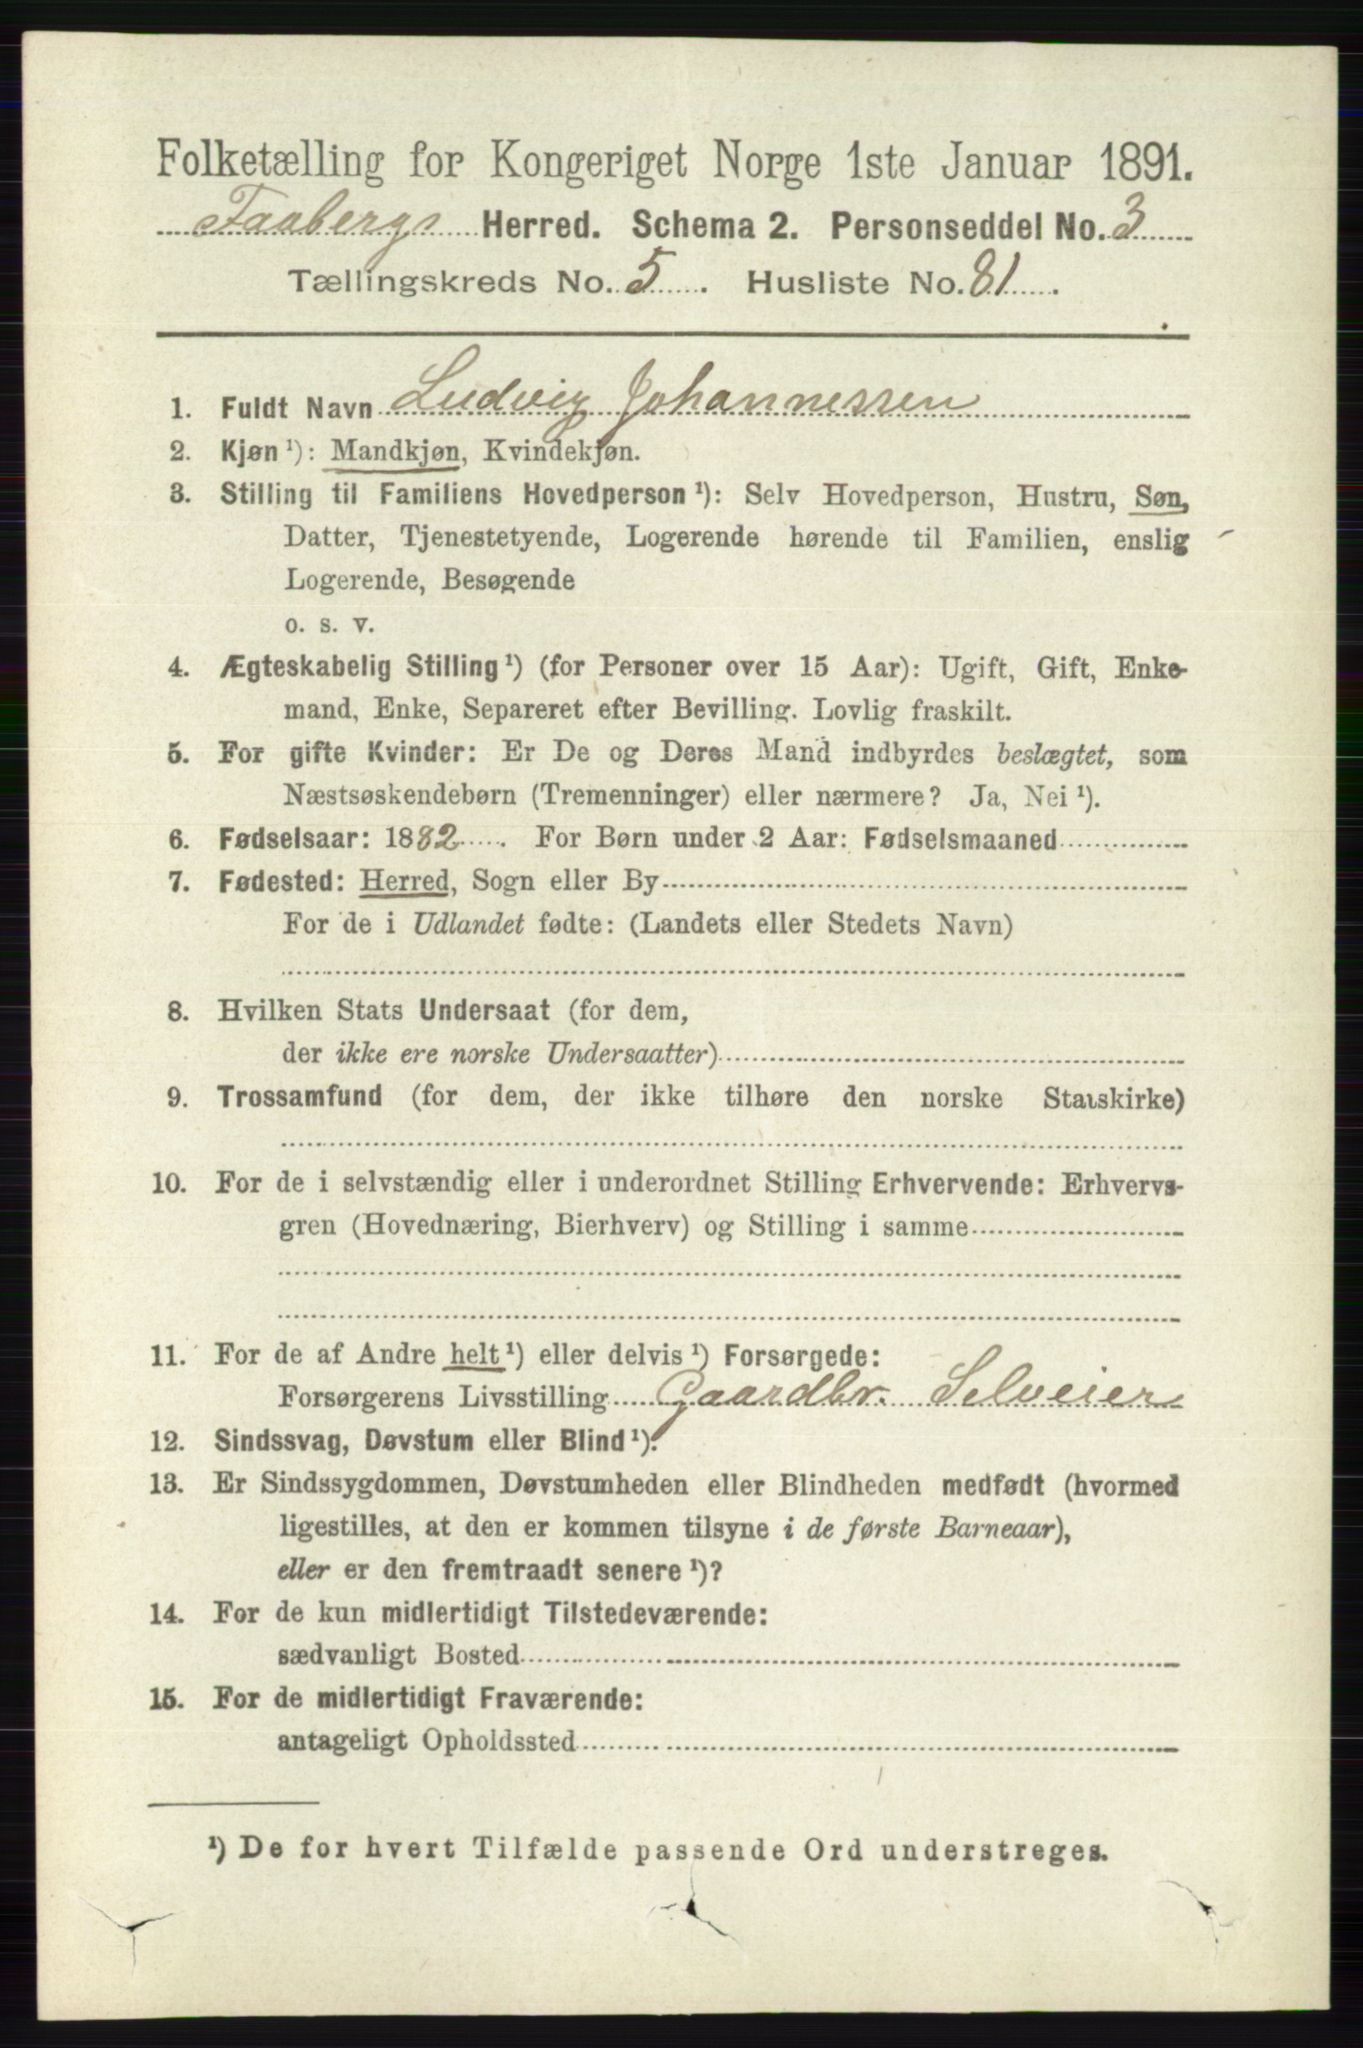 Folketælling for Kongeriget Norge 1ste Januar 1891.
Faabergs Herred. Schema 2. Personseddel No. 3
Tællingskreds No. 5. Husliste No. 81.
1. Fuldt Navn Ludvig Johannessen
2. Kjøn ¹): Mandkjøn, Kvindekjøn.
3. Stilling til Familiens Hovedperson ¹): Selv Hovedperson, Hustru, Søn,
Datter, Tjenestetyende, Logerende hørende til Familien, enslig
Logerende, Besøgende
o. s. v.
4. Ægteskabelig Stilling ¹) (for Personer over 15 Aar): Ugift, Gift, Enke-
mand, Enke, Separeret efter Bevilling. Lovlig fraskilt.
5. For gifte Kvinder: Er De og Deres Mand indbyrdes beslægtet, som
Næstsøskendebørn (Tremenninger) eller nærmere? Ja, Nei ¹).
6. Fødselsaar: 1882. For Børn under 2 Aar: Fødselsmaaned
7. Fødested: Herred, Sogn eller By
For de i Udlandet fødte: (Landets eller Stedets Navn)
8. Hvilken Stats Undersaat (for dem,
der ikke ere norske Undersaatter)
9. Trossamfund (for dem, der ikke tilhøre den norske Statskirke)
10. For de i selvstændig eller i underordnet Stilling Erhvervende: Erhvervs-
gren (Hovednæring, Bierhverv) og Stilling i samme
11. For de af Andre helt ¹) eller delvis ¹) Forsørgede:
Forsørgerens Livsstilling Gaardbr. Selveier
12. Sindssvag, Døvstum eller Blind ¹).
13. Er Sindssygdommen, Døvstumheden eller Blindheden medfødt (hvormed
ligestilles, at den er kommen tilsyne i de første Barneaar),
eller er den fremtraadt senere ¹)?
14. For de kun midlertidigt Tilstedeværende:
sædvanligt Bosted
15. For de midlertidigt Fraværende:
antageligt Opholdssted
¹) De for hvert Tilfælde passende Ord understreges.